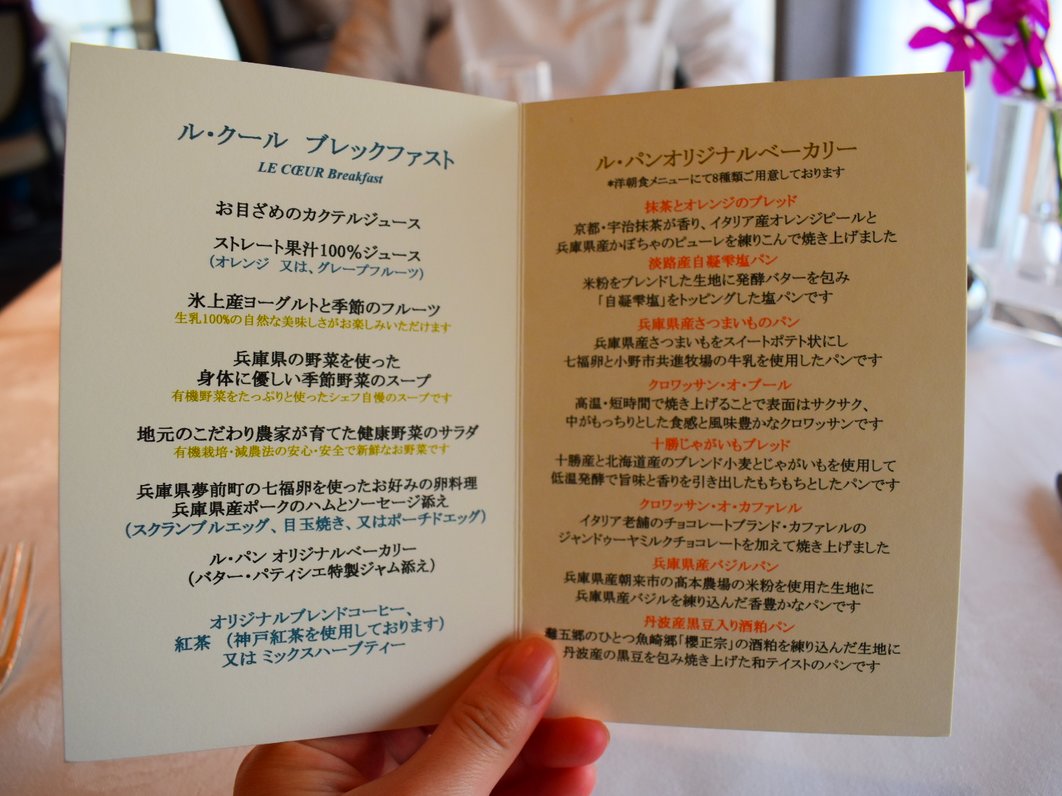 ル・クール ブレックファスト
LE CŒUR Breakfast
お目ざめのカクテルジュース
ストレート果汁100%ジュース
(オレンジ 又は、グレープフルーツ)
氷上産ヨーグルトと季節のフルーツ
生乳100%の自然な美味しさがお楽しみいただけます
兵庫県の野菜を使った
身体に優しい季節野菜のスープ
有機野菜をたっぷりと使ったシェフ自慢のスープです
地元のこだわり農家が育てた健康野菜のサラダ
有機栽培・減農法の安心・安全で新鮮なお野菜です
兵庫県夢前町の七福卵を使ったお好みの卵料理
兵庫県産ポークのハムとソーセージ添え
(スクランブルエッグ、目玉焼き、又はポーチドエッグ)
ル・パン オリジナルベーカリー
(バター・パティシエ特製ジャム添え)
オリジナルブレンドコーヒー、
紅茶 (神戸紅茶を使用しております)
又は ミックスハーブティー
ル・パンオリジナルベーカリー
*洋朝食メニューにて8種類ご用意しております
抹茶とオレンジのブレッド
京都・宇治抹茶が香り、イタリア産オレンジピールと
兵庫県産かぼちゃのピューレを練りこんで焼き上げました
淡路産自凝雫塩パン
米粉をブレンドした生地に発酵バターを包み
「自凝雫塩」をトッピングした塩パンです
兵庫県産さつまいものパン
兵庫県産さつまいもをスイートポテト状にし
七福卵と小野市共進牧場の牛乳を使用したパンです
クロワッサン・オ・ブール
高温・短時間で焼き上げることで表面はサクサク、
中がもっちりとした食感と風味豊かなクロワッサンです
十勝じゃがいもブレッド
十勝産と北海道産のブレンド小麦とじゃがいもを使用して
低温発酵で旨味と香りを引き出したもちもちとしたパンです
クロワッサン・オ・カファレル
イタリア老舗のチョコレートブランド・カファレルの
ジャンドゥーヤミルクチョコレートを加えて焼き上げました
兵庫県産バジルパン
兵庫県産朝来市の髙本農場の米粉を使用た生地に
兵庫県産バジルを練り込んだ香豊かなパンです
丹波産黒豆入り酒粕パン
灘五郷のひとつ魚崎郷「櫻正宗」の酒粕を練り込んだ生地に
丹波産の黒豆を包み焼き上げた和テイストのパンです